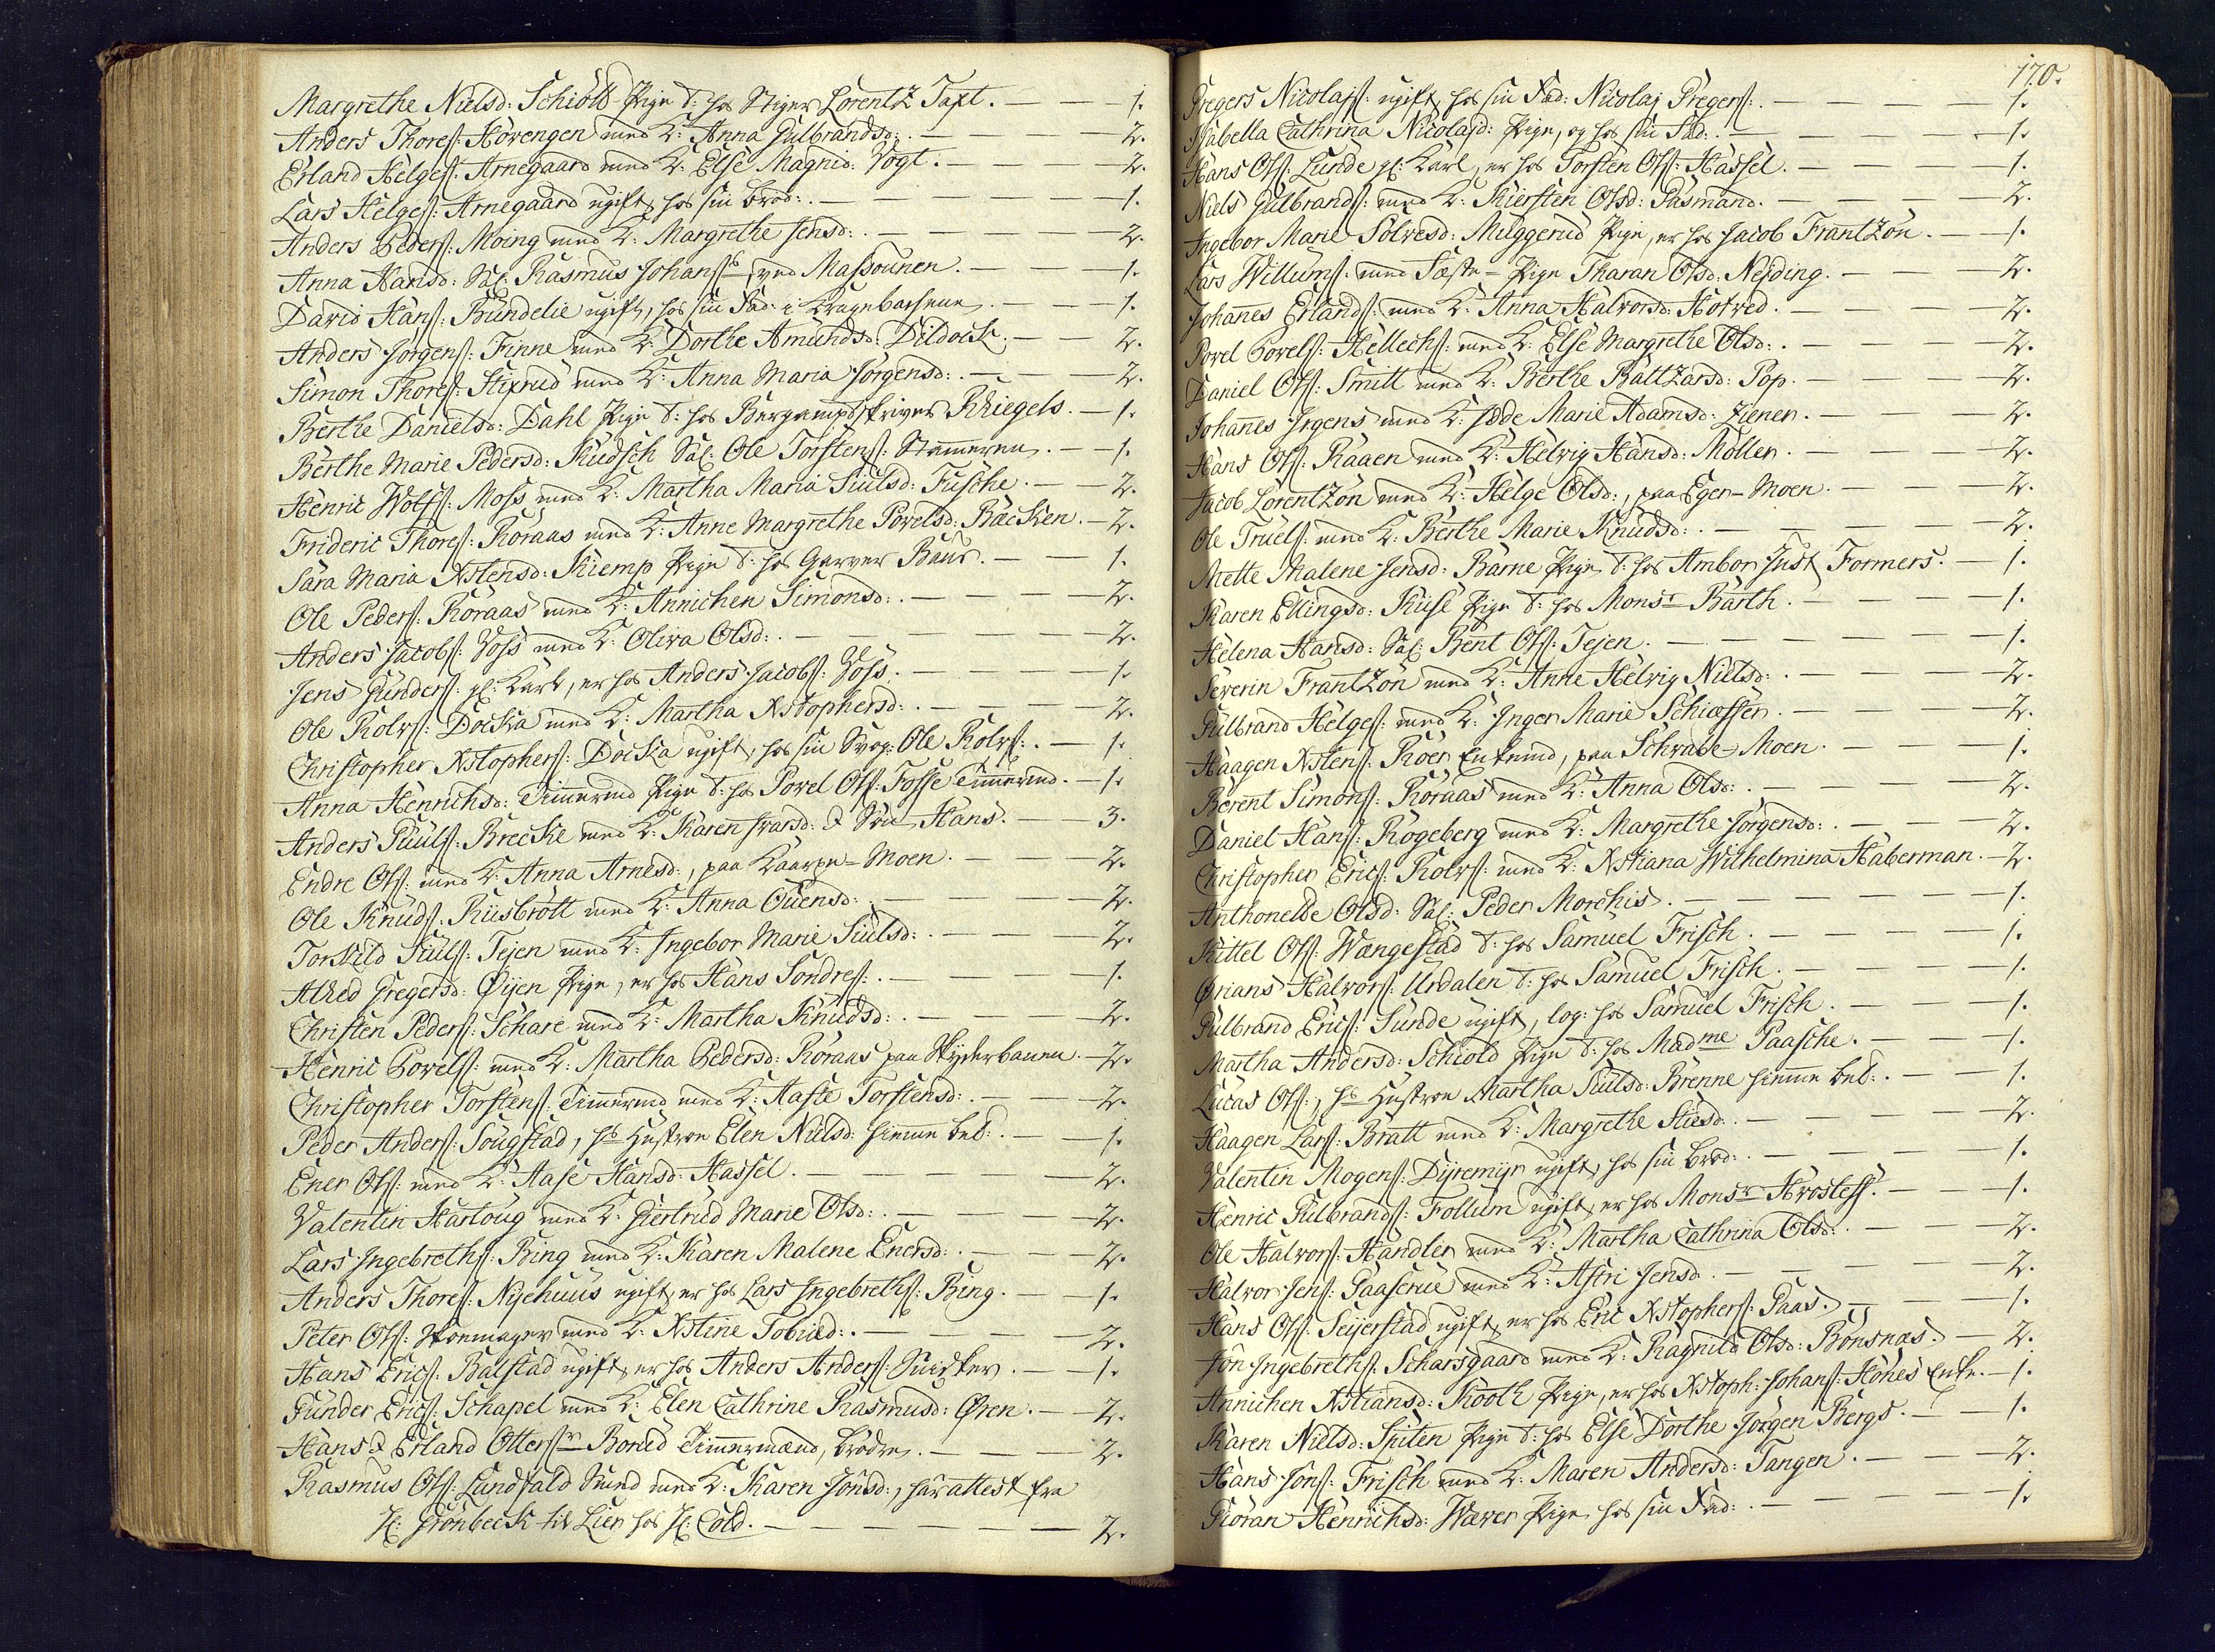 Margrethe Nielsd: Schiött Pige t: hos Stiger Lorentz Taxt. — — 1.
Anders Thoreß: Hövengen med K: Anna Gulbrandsd: . — — 2.
Erland Helgeß: Arnegaard med K: Else Magnid: Vogt. — — 2.
Lars Helgeß: Arnegaard ugift, hos sin Brod: . — — 1.
Anders Pederß: Moing med K: Margrethe Jensd: . — — 2.
Anna Hansd: Sal: Rasmus Johanß ved Massounen. — — 1.
David Hanß: Bundelie ugift, hos sin Fad: i Kragebachen. — — 1.
Anders Jörgenß: Finne med K: Dorthe Amundsd: Dildock. — — 2.
Simon Thoreß: Stixrud med K: Anna Maria Jörgensd: . — — 2.
Berthe Danielsd: Dahl Pige t: hos Bergampskriver Kriegels. — 1.
Berthe Marie Pedersd: Kudsch Sal: Ole Torstenß: . — 1.
Henric Wolfß: Moss med K: Martha Maria Siulsd: Fusche. — — 2.
Frideric Thoreß: Röraas med K: Anne Margrethe Povelsd: Bæcken. — 2.
Sara Maria Xstensd: Kiemp Pige t: hos Garver Baur. — — 1.
Ole Pederß: Röraas med K: Annichen Simonsd: . — — 2.
Anders Jacobß: Voss med K: Oliva Olsd: . — — 2.
Jens Gunderß: gl: Karl, er hos Anders Jacobß: Voss. — — 1.
Ole Rolvß: Docka med K: Martha Xstophersd: . — — 2.
Christopher Xstopherß: Docka ugift, hos sin Svog: Ole Rolvß: . — 1.
Anna Henrichsd: Timermd Pige t: hos Povel Olß: Fosse Timermd. — 1.
Anders Juulß: Brecke med K: Karen Ivarsd: & Sön Hans. — — 3.
Endre Olß: med K: Anna Arnesd:, paa Kaarpe-Moen. — — 2.
Ole Knudß: Riisbrött med K: Anna Ouensd: . — — 2.
Torkild Siulß: Tejen med K: Ingebor Marie Siulsd: . — — 2.
Alhed Gregersd: Öyen Pige, er hos Hans Söndreß: . — — 1.
Christen Pederß: Schare med K: Martha Knudsd: . — — 2.
Henric Povelß: med K: Martha Pedersd: Röraas paa Skyderbanen. — 2.
Christopher Torstenß: Timermd med K: Aaste Torstensd: . — — 2.
Peder Anderß: Sougstad, hs Hustroe Elen Nielsd: hieme bet: . — — 1.
Ener Olß: med K: Aase Hansd: Hassel. — — 2.
Valentin Hartoug med K: Giertrud Marie Olsd: . — — 2.
Lars Ingebrethß: Bing med K: Karen Malene Enersd: . — — 2.
Anders Thoreß: Nyehuus ugift, er hos Lars Ingebrethß: Bing. — — 1.
Peter Olß: Skoemager med K: Xstine Tobiæd: . — — 2.
Hans Ericß: Balstad ugift, er hos Anders Anderß: Snidker. — — 1.
Gunder Ericß: Schapel med K: Elen Cathrine Rasmusd: Ören. — — 2.
Hans & Erland Otterßr Borud Timermænd, brödre. — — 2.
Rasmus Olß: Lundfald Smed med K: Karen Jonsd:, har attest fra
H: Grönbeck til Lier hos H: Cold. — — 2.
170.
Gregers Nicolajß: ugift, hos sin Fad: Nicolaj Gregerß: . — — 1.
Isabella Cathrina Nicolajd: Pige, og hos sin Fad: . — — 1.
Hans Olß: Lunde gl: Karl, er hos Torsten Olß: Hassel. — — 1.
Niels Gulbrandß: med K: Kiersten Olsd: Pasmand. — — 2.
Ingebor Marie Solvesd: Muggerud Pige, er hos Jacob Frantzön. — 1.
Lars Willumß: med Fæste-Pige Tharan Olsd: Nejding. — — 2.
Johanes Erlandß: med K: Anna Halvorsd: Hotved. — — 2.
Povel Povelß: Hellechß: med K: Else Margrethe Olsd: . — — 2.
Daniel Olß: Smitt med K: Berthe Baltzarsd: Pop. — — 2.
Johanes Irgens med K: Hedde Marie Adamsd: Ziener. — — 2.
Hans Olß: Raaen med K: Helvig Hansd: Möller. — — 2.
Jacob Lorentzön med K: Helge Olsd:, paa Eger-Moen. — — 2.
Ole Truelß: med K: Berthe Marie Knudsd: . — — 2.
Mette Malene Jensd: Barne Pige t: hos Ambor Just Formers. — 1.
Karen Ellingsd: Kiise Pige t: hos Monsr Barth. — — 1.
Helena Hansd: Sal: Bent Olß: Tejen. — — 1.
Severin Frantzön med K: Anne Helvig Nielsd: . — — 2.
Gulbrand Helgeß: med K: Inger Marie Schiæffer. — — 2.
Haagen Xstenß: Röer Enkemd, paa Schvabe-Moen. — — 1.
Berent Simonß: Röraas med K: Anna Olsd: . — — 2.
Daniel Hanß: Rogeberg med K: Margrethe Jörgensd: . — — 2.
Christopher Ericß: Rolvß: med K: Xstiana Wilhelmina Haberman. — 2.
Anthonette Olsd: Sal: Peder Morchis. — — 1.
Kittel Olß: Wangestad t: hos Samuel Frisch. — — 1.
Örians Halvorß: Urdalen t: hos Samuel Frisch. — — 1.
Gulbrand Ericß: Sunde ugift, log: hos Samuel Frisch. — — 1.
Martha Andersd: Schiold Pige t: hos Madme Paasche. — — 1.
Lucas Olß:, hs Hustroe Martha Siulsd: Brenne hieme bet: . — — 1.
Haagen Larß: Bratt med K: Margrethe Stiesd: . — — 2.
Valentin Mogenß: Dyremyr ugift, hos sin Brod: . — — 1.
Henric Gulbrandß: Follum ugift, er hos Monsr Hrosleff. — — 1.
Ole Halvorß: Handler med K: Martha Cathrina Olsd: . — — 2.
Halvor Jenß: Gaaserue med K: Astri Jensd. — — 2.
Hans Olß: Seyerstad ugift, er hos Eric Xstopherß: Paas. — — 1.
Jon Ingebrethß: Scharsgaard med K: Ragnild Olsd: Bönsnæs. — 2.
Annichen Xstiansd: Kooth Pige, er hos Xstoph: Johanß: Hönes Enke. — 1.
Karen Nielsd: Spiten Pige t: hos Else Dorthe Jörgen Bergs. — — 1.
Hans Jonß: Frisch med K: Maren Andersd: Tangen. — — 2.
Giöran Henrichsd: Wæver Pige hos sin Fad: . — — 1.